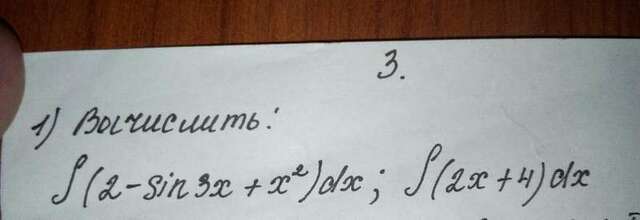 3.
1) Вычислить:
∫(2-sin3x+x²)dx; ∫(2x+4)dx